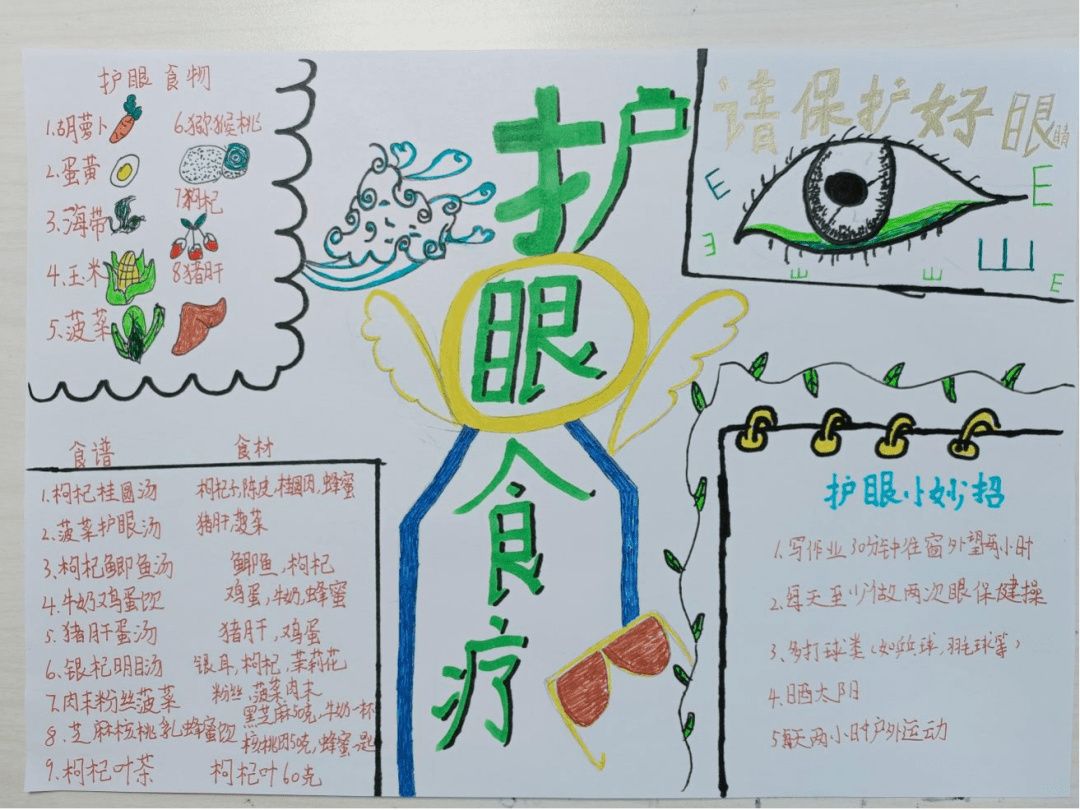 护眼食物
1.胡萝卜
2.蛋黄
3.海带
4.玉米
5.菠菜
6.猕猴桃
7枸杞
8猪肝
护
眼
食
疗
请保护好眼睛
E
E
E
E
E
E
E
食谱 食材
1.枸杞桂圆汤 枸杞子,陈皮,桂圆肉,蜂蜜
2.菠菜护眼汤 猪肝,菠菜
3.枸杞鲫鱼汤 鲫鱼,枸杞
4.牛奶鸡蛋饮 鸡蛋,牛奶,蜂蜜
5.猪肝蛋汤 猪肝,鸡蛋
6.银杞明目汤 银耳,枸杞,茉莉花
7.肉末粉丝菠菜 粉丝,菠菜肉末
8.芝麻核桃乳蜂蜜饮 黑芝麻50克,牛奶一杯
核桃肉50克,蜂蜜一匙
9.枸杞叶茶 枸杞叶60克
护眼小妙招
1.写作业30分钟往窗外望两小时
2.每天至少做两次眼保健操
3.多打球类(如乒乓球,羽毛球等)
4.日晒太阳
5每天两小时户外运动